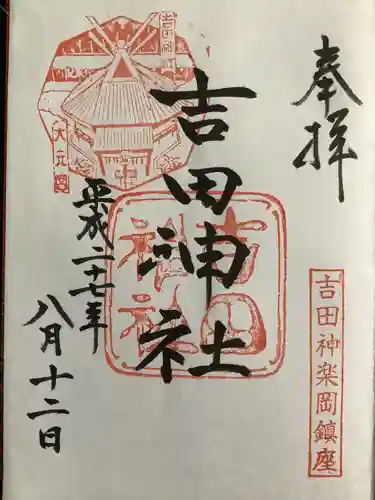 奉拝
吉田神楽岡鎮座
吉田神社
吉田神社
吉田神社
大元宮
平成二十七年
八月十二日